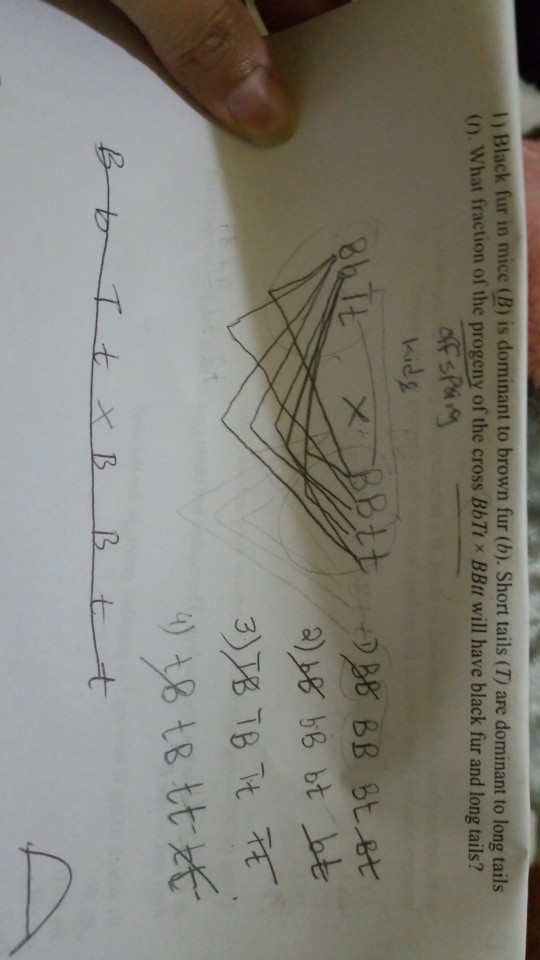 1) Black fur in mice (B) is dominant to brown fur (b). Short tails (T) are dominant to long tails
(t). What fraction of the progeny of the cross BbTt × BBtt will have black fur and long tails?
offspring
kids
BbTt × BBtt
1) BB BB Bt Bt
2) bB bB bt bt
3) TB TB Tt Tt
4) tB tB tt tt
B b T t × B B t t